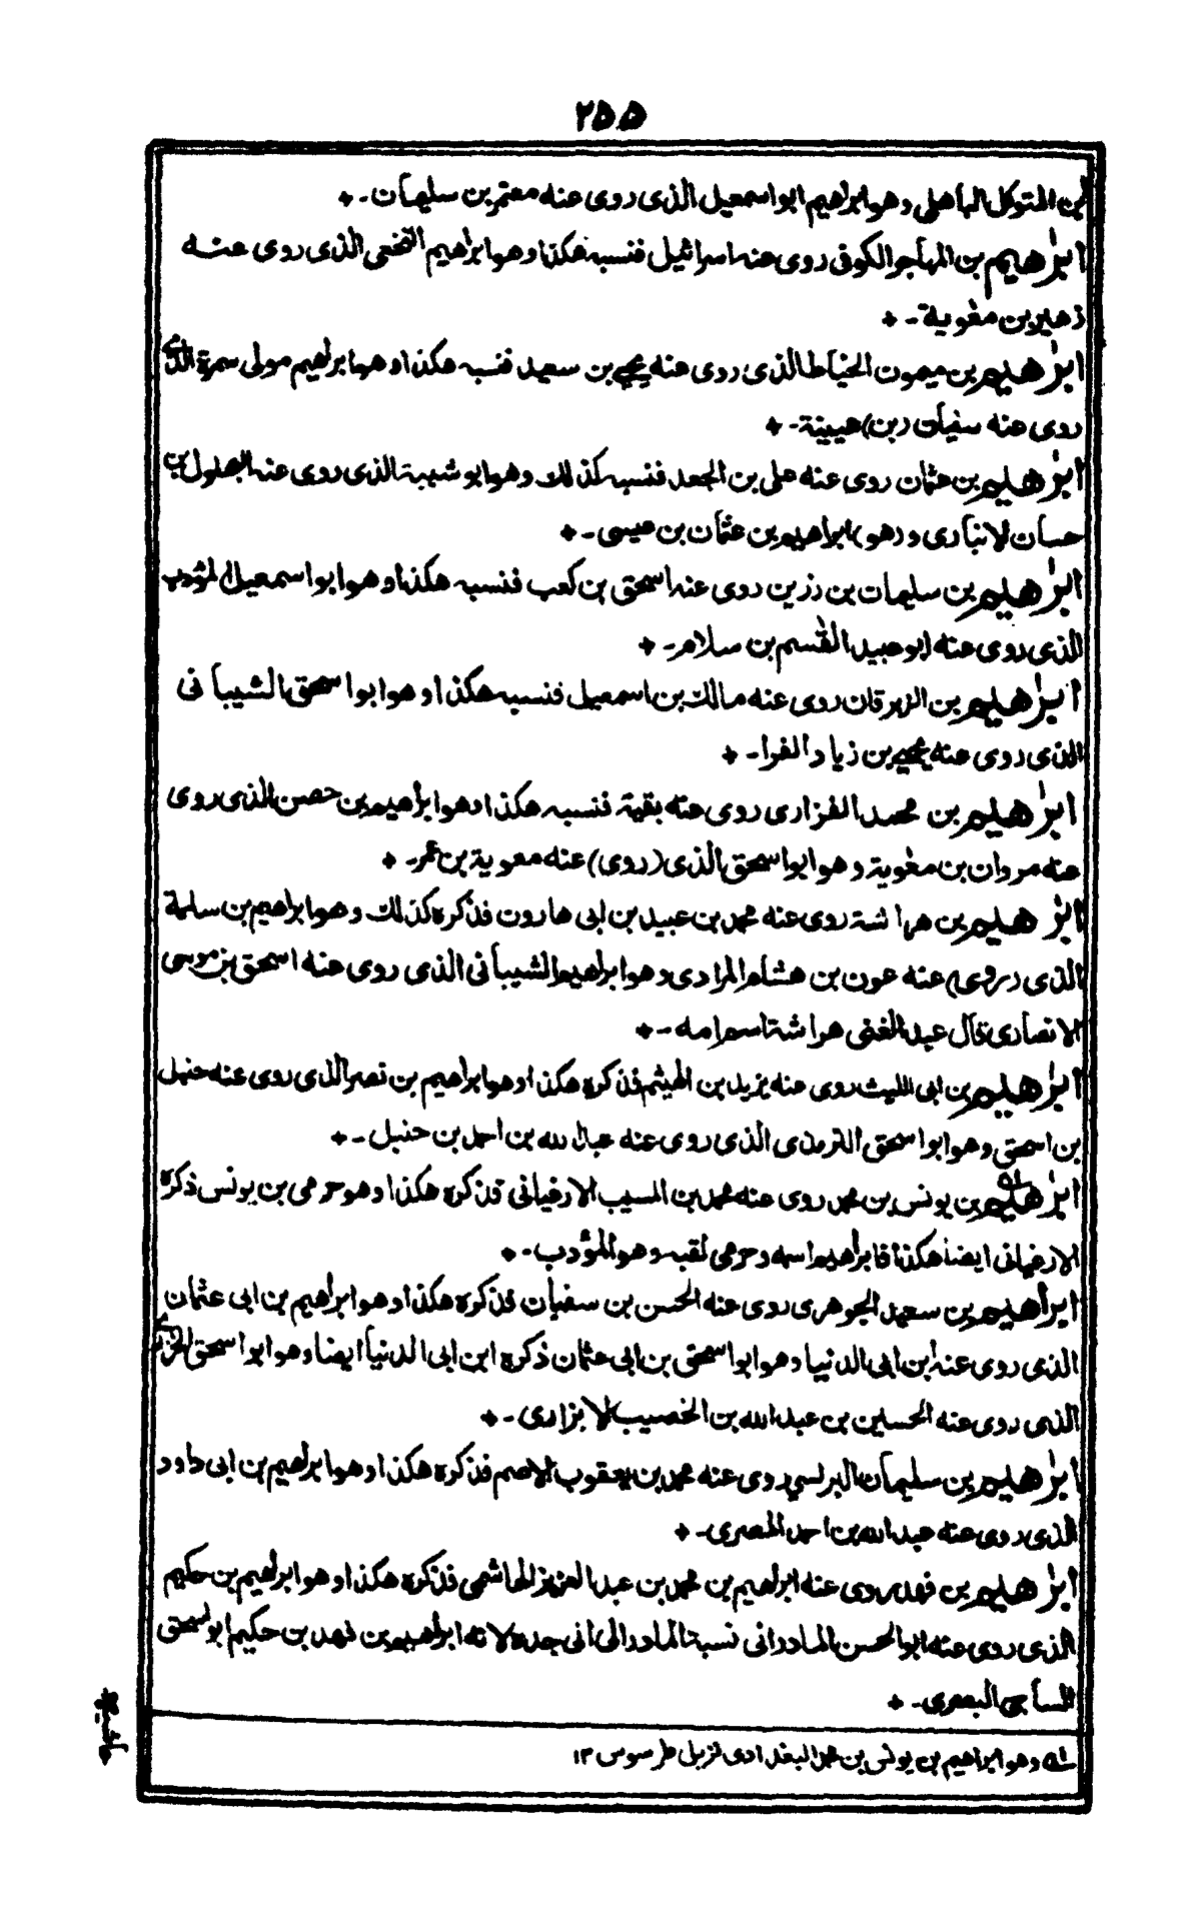 ۲۵۵
ابن المتوكل الباهلي وهو ابراهيم ابو اسمعيل الذى روى عنه معتمر بن سليمان۔
ابراهيم بن المهاجر الكوفى روى عنه اسرائيل فنسبه هكذا وهو ابراهيم النخعى الذى روى عنه
زهير بن معوية۔
ابراهيم بن ميمون الخياط الذى روى عنه يحيى بن سعيد فنسبه هكذا وهو ابراهيم مولى سمرة الذى
روى عنه سفيان (بن) عيينة۔
ابراهيم بن عثمان روى عنه على بن الجعد فنسبه كذلك وهو ابو شيبة الذى روى عنه البهلول بن
حسان الانبارى و(هو) ابراهيم بن عثمان بن عيسى۔
ابراهيم بن سليمان بن رزين روى عنه اسحق بن كعب فنسبه هكذا وهو ابو اسمعيل المؤدب
الذى روى عنه ابو عبيد القسم بن سلام۔
ابراهيم بن الزبرقان روى عنه مالك بن اسمعيل فنسبه هكذا وهو ابو اسحق الشيبانى
الذى روى عنه يحيى بن زياد الفرا۔
ابراهيم بن محمد الفزارى روى عنه بقية فنسبه هكذا وهو ابراهيم بن حصن الذى روى
عنه مروان بن معوية وهو ابو اسحق الذى (روى) عنه معوية بن عمر۔
ابراهيم بن هراشة روى عنه محمد بن عبيد بن ابى هارون فذكره كذلك وهو ابراهيم بن سلمة
الذى (روى) عنه عون بن هشام المرادى وهو ابراهيم الشيبانى الذى روى عنه اسحق بن موسى
الانصارى قال عبد الغنى هراشة اسم امه۔
ابراهيم بن ابى الليث روى عنه يزيد بن الهيثم فذكره هكذا وهو ابراهيم بن نصر الذى روى عنه حنبل
بن اسحق وهو ابو اسحق الترمذى الذى روى عنه عبد الله بن احمد بن حنبل۔
ابراهيم بن يونس بن محمد روى عنه محمد بن المسيب الارغيانى فذكره هكذا وهو حرمى بن يونس ذكره
الارغيانى ايضا هكذا فابراهيم اسمه وحرمى لقبه وهو المؤدب۔
ابراهيم بن سعيد الجوهرى روى عنه الحسن بن سفيان فذكره هكذا وهو ابراهيم بن ابى عثمان
الذى روى عنه ابن ابى الدنيا وهو ابو اسحق بن ابى عثمان ذكره ابن ابى الدنيا ايضا وهو ابو اسحق
الذى روى عنه الحسين بن عبد الله بن الخصيب الابزارى۔
ابراهيم بن سليمان البرلسي روى عنه محمد بن يعقوب الاصم فذكره هكذا وهو ابراهيم بن ابى داود
الذى روى عنه عبد الله بن احمد المصرى۔
ابراهيم بن فهد روى عنه ابراهيم بن محمد بن عبد العزيز الهاشمى فذكره هكذا وهو ابراهيم بن حكيم
الذى روى عنه ابو الحسن المادرانى نسبة المادرالى انى جده لانه ابراهيم بن فهد بن حكيم ابو اسحق
الساجى البصرى۔
حاشيه
وهو ابراهيم بن يونس بن محمد البغدادى نزيل طرسوس ۱۲